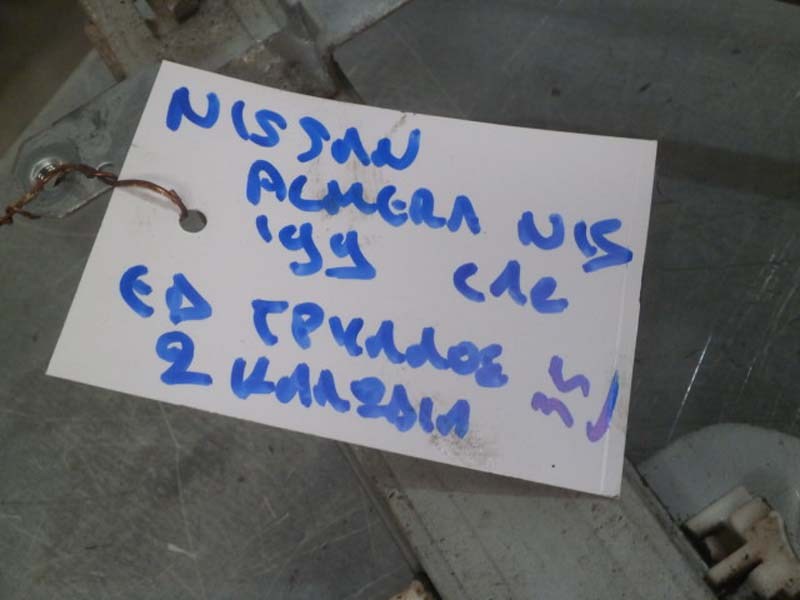 NISSAN
ALMERA N15
'99 C/AC
ΕΔ ΓΡΥΛΛΟΣ
2 ΚΑΛΩΔΙΑ
35